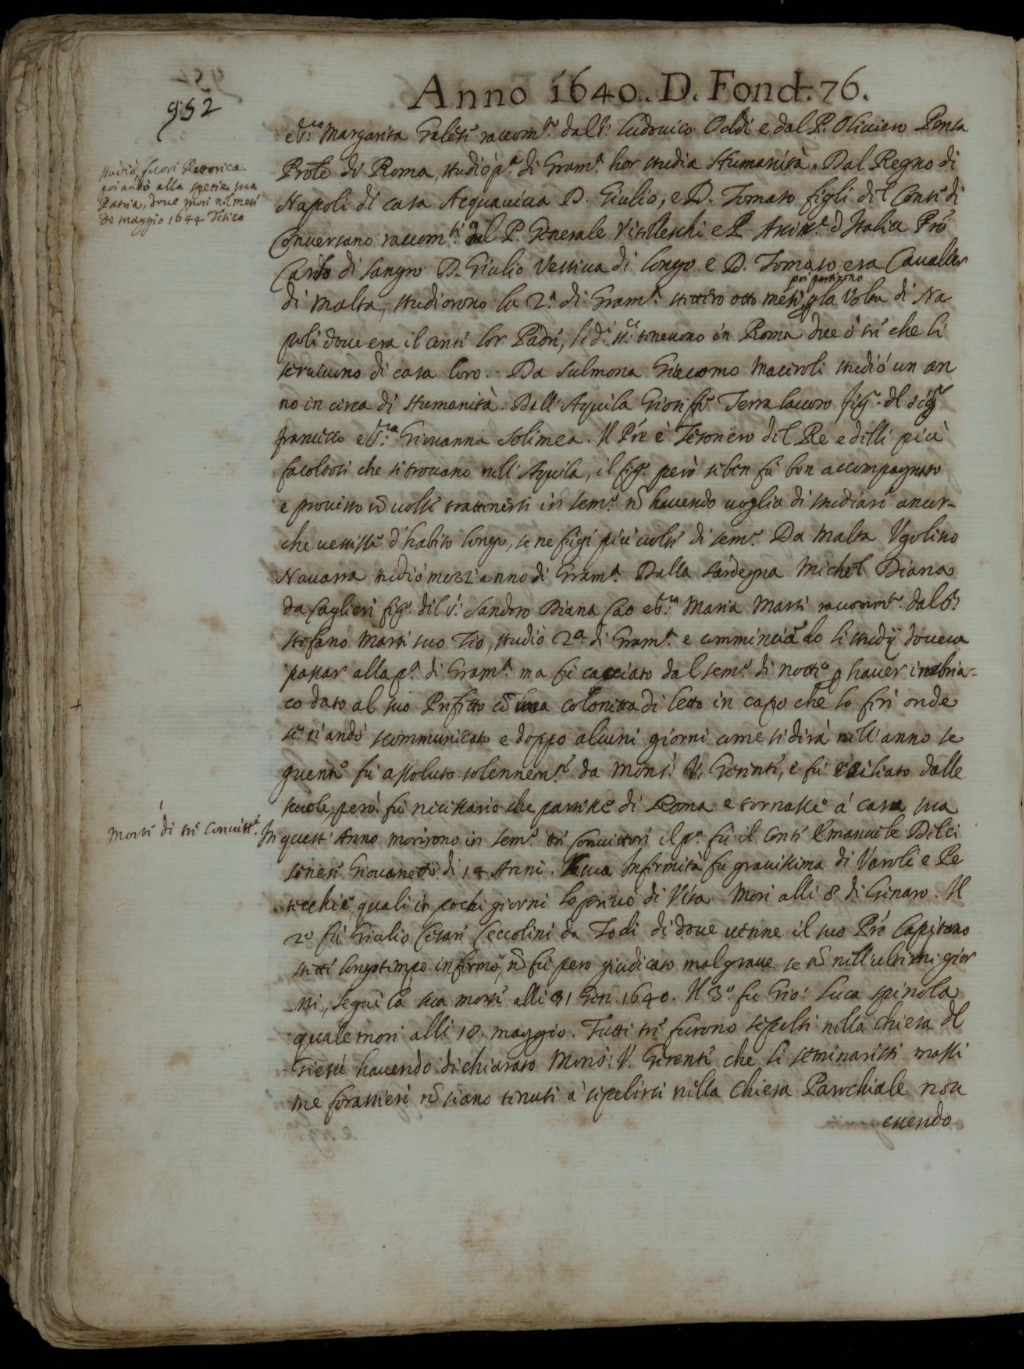 952
Anno 1640. D. Fond. 76.
e S.ra Margarita Galetti raccom.to dal S. Ludovico Oddi e dal P. Oliviero Pensa
Prote di Roma, studiò p.a di Gram.a hor studia Humanità. Dal Regno di
Napoli di casa Acquaviva D. Giulio, e D. Tomaso figli del Conte di
Conversano raccom.ti dal P. Generale Vitelleschi e P. Assist.e d'Italia Prô
Carlo di Sangro D. Giulio vestiva di longo e D. Tomaso era Cavalier
poi partirono
di Malta, studiorono la 2.a di Gram.a stettero otto mesi p la volta di Na
poli dove era il anti lor Padri, li d.i SS.ri tenevono in Roma due ò tre che li
servivono di casa loro. Da Sulmona Giacomo Maceroli studiò un an
no in circa di Humanità. Dall'Aquila Gioseffo Terra lavoro fig.o del sig.r
francesco e S.ra Giovanna Solimea. Il Pre è Tesoriero del Re e delli più
facoltosi che si trovano nell'Aquila, il fig.o però si ben fù ben accompagnato
e provisto nô volse trattenersi in sem.o nô havendo voglia di studiare ancor-
che vestisse d'habito longo, se ne fugì più volte di sem.o Da Malta Ugolino
Navarra studiò mezz'anno di Gram.a Dalla Sardegna Michel Diana
da Caglieri fig.o del S. Sandro Diana Cao e S.ra Maria Marti raccom.to dal P.
Stefano Marti suo Tio, studiò 2.a di Gram.a e comminciâdo li studij doveva
passar alla p.a di Gram.a ma fu cacciato dal sem.o di notte p haver inbria-
co dato al suo Prefetto cô una colonetta di letto in capo che lo ferì onde
se ne andò scommunicato e doppo alcuni giorni come si dirà nell'anno se
guente fu assoluto solennem.te da Mons.r V. Gerente, e fu esiliato dalle
scuole, però fu necessario che partisse di Roma e tornasse à casa sua
In quest'Anno morirono in sem.o tre convittori il p.o fu il Conte Emanuele Delci
senese Giovanetto di 18 Anni. La sua Infermità fu gravissima di Varoli e Pe
tecchie quali in pochi giorni lo privò di Vita. Morì alli 8 di Genaro. Il
2.o fu Giulio Cesare Ceccolini da Todi di dove venne il suo Prê Capitano
stette longo tempo infermo, nô fu pero giudicato mal grave se nô nell'ultimi gior
ni, seguì la sua morte alli 31 Gen. 1640. Il 3.o fu Gio: Luca Spinola
quale morì alli 18. maggio. Tutti tre furono sepolti nella chiesa del
Giesù havendo dichiarato Mons.r V. Gerente che li seminaristi massi
me forastieri nô siano tenuti à sepelirsi nella Chiesa Parochiale non
essendo
studiò fuori Retorica
poi andò alla spetia sua
Patria, dove morì nel mese
di maggio 1644 Titico
Morte di tre Convitt.i